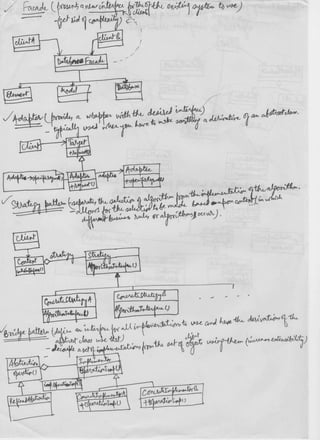 Facade (present a new interface for the of the existing system to use)
- get rid of complexity)
client
clientA
clientB
Database Facade
Element
Model
Database
Adapter (provides a wrapper with the desired interface)
- typically used when you have to make something a derivative of an abstract class.
Client
Target
+request()
Adapter
+request()
adaptee
Adaptee
Strategy pattern (separates the selection of algorithm from the implementation of the algorithm.
- allows for the selection to be made based upon context (in which
different business rules or algorithms occur).
Client
Context
strategy
Strategy
AlgorithmInterface()
ConcreteStrategyA
AlgorithmInterface()
ConcreteStrategyB
AlgorithmInterface()
Bridge pattern (define an interface for all implementations to use and have the derivations of the
abstract class use that)
- decouple a set of implementations from the set of objects using them (increases extensibility)
Abstraction
operation()
Implementor
OperationImp()
RefinedAbstraction
ConcreteImplementorA
+OperationImp()
ConcreteImplementorB
+OperationImp()